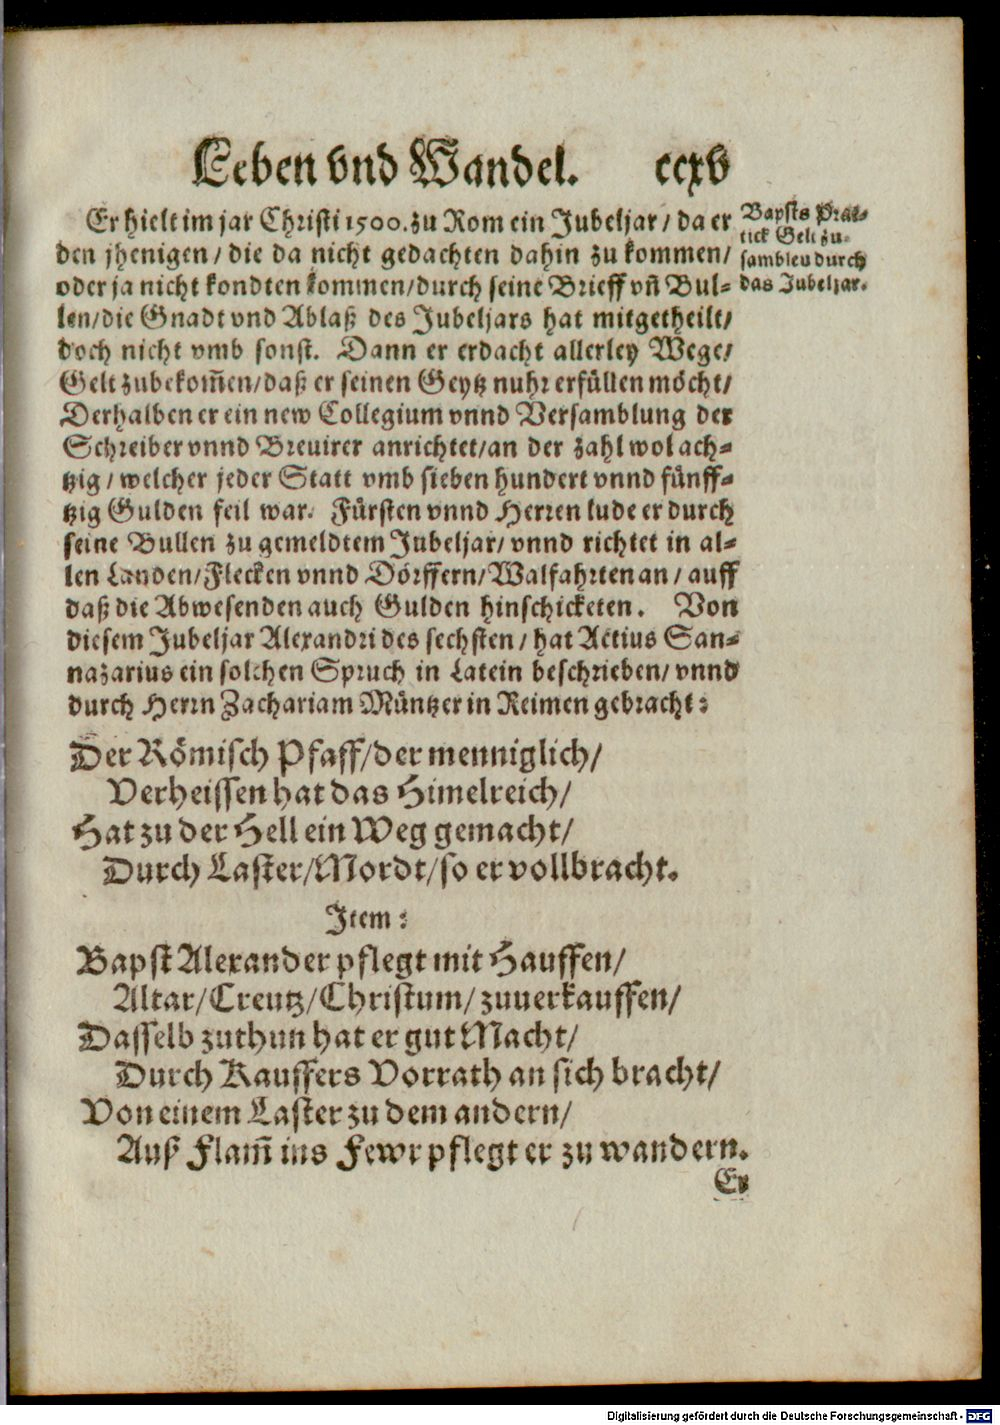 Leben vnd Wandel. ccxv
Er hielt im jar Christi 1500. zu Rom ein Jubeljar / da er
den jhenigen / die da nicht gedachten dahin zu kommen /
oder ja nicht kondten kommen / durch seine Brieff vñ Bul-
len / die Gnadt vnd Ablaß des Jubeljars hat mitgetheilt /
doch nicht vmb sonst. Dann er erdacht allerley Wege /
Gelt zubekom̃en / daß er seinen Geytz nuhr erfüllen möcht /
Derhalben er ein new Collegium vnnd Versamblung der
Schreiber vnnd Breuirer anrichtet / an der zahl wol ach-
tzig / welcher jeder Statt vmb sieben hundert vnnd fünff-
tzig Gulden feil war. Fürsten vnnd Herren lude er durch
seine Bullen zu gemeldtem Jubeljar / vnnd richtet in al-
len Landen / Flecken vnnd Dörffern / Walfahrten an / auff
daß die Abwesenden auch Gulden hinschicketen. Von
diesem Jubeljar Alexandri des sechsten / hat Actius San-
nazarius ein solchen Spruch in Latein beschrieben / vnnd
durch Herrn Zachariam Müntzer in Reimen gebracht:
Bapsts Prac-
tick Gelt zu-
samblen durch
das Jubeljar.
Der Römisch Pfaff / der menniglich /
Verheissen hat das Himelreich /
Hat zu der Hell ein Weg gemacht /
Durch Laster / Mordt / so er vollbracht.
Item:
Bapst Alexander pflegt mit Hauffen /
Altar / Creutz / Christum / zuuerkauffen /
Dasselb zuthun hat er gut Macht /
Durch Kauffers Vorrath an sich bracht /
Von einem Laster zu dem andern /
Auß Flam̃ ins Fewr pflegt er zu wandern.
Er
Digitalisierung gefördert durch die Deutsche Forschungsgemeinschaft - DFG